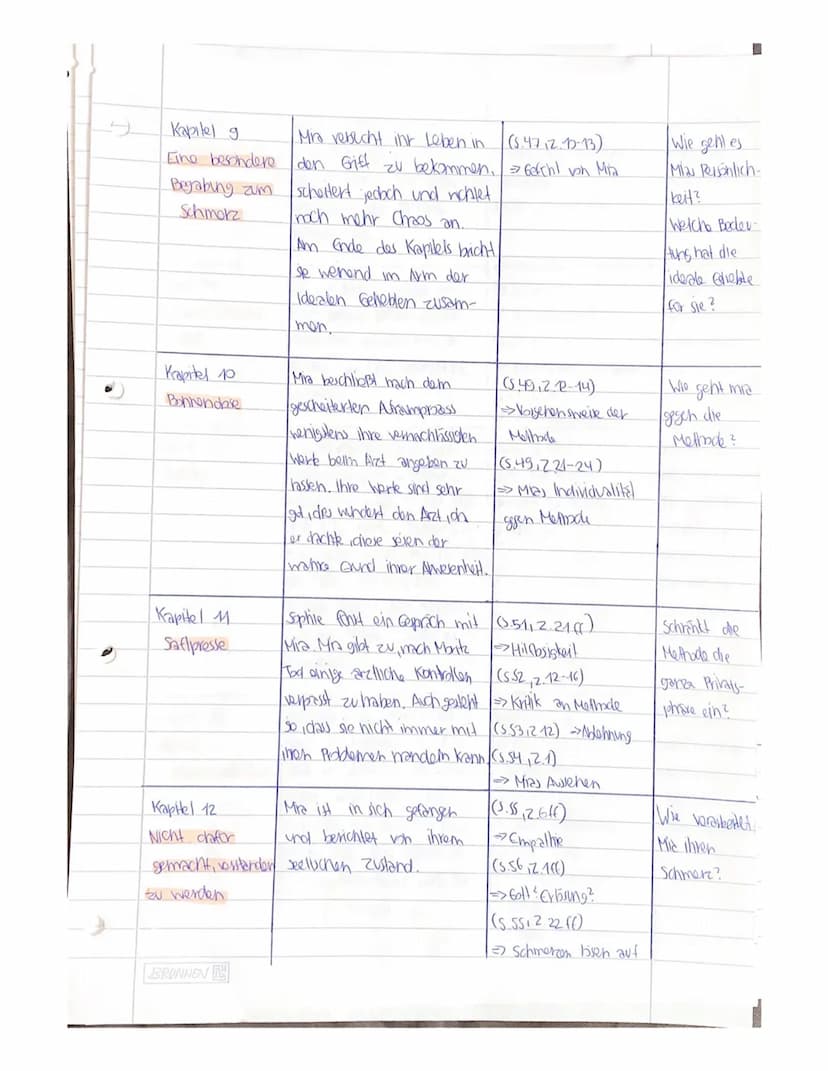 Kapitel 9
Eine besondere
Begabung zum
Schmerz
Mia versucht ihr Leben in
den Griff zu bekommen,
scheitert jedoch und richtet
noch mehr Chaos an.
Am Ende des Kapitels bricht
sie weinend im Arm der
idealen Geliebten zusam-
men.
(S.47, Z. 10-13)
⇒ Gefühl von Mia
Wie geht es
Mias Persönlich-
keit?
Welche Bedeu-
tung hat die
ideale Geliebte
für sie?
Kapitel 10
Bohnendose
Mia beschließt nach dem
gescheiterten
wenigstens ihre vernachlässigten
Werte beim Arzt angeben zu
lassen. Ihre Werte sind sehr
gut, dies wundert den Arzt,
er dachte, diese seien der
wahre Grund ihrer Anwesenheit.
(S.49, Z. 12-14)
⇒ Vorgehensweise der
Methode
(S.49, Z.21-24)
⇒ Mias Individualität
gegen Methode
Wie geht Mia
gegen die
Methode?
Kapitel 11
Saftpresse
Sophie führt ein Gespräch mit
Mia. Mia gibt zu, nach Moritz
Tod einige ärztliche Kontrollen
verpasst zu haben. Auch gesteht
sie, dass sie nicht immer mit
ihren Problemen kann.
(S.51, Z. 21ff)
⇒ Hilflosigkeit
(S.52, Z.12-16)
⇒ Kritik an Methode
(S.53, Z.12) ⇒ Ablehnung
(S.54, Z.1)
⇒ Mias Aussehen
Schränkt die
Methode die
ganze Privats-
phäre ein?
Kapitel 12
Nicht dafür
gemacht, verstanden
zu werden
Mia ist in sich gefangen
und berichtet von ihrem
seelischen Zustand.
(S.55, Z.6ff)
⇒ Empathie
(S.56, Z.1ff)
⇒ Gott? Erlösung?
(S.55, Z 22 ff)
⇒ Schmerzen lösen auf
Wie verarbeitet
Mia ihren
Schmerz?
BRUNNEN